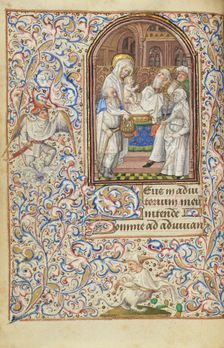 Deus in adiu
torium meū
intende
Domine ad adiuuan